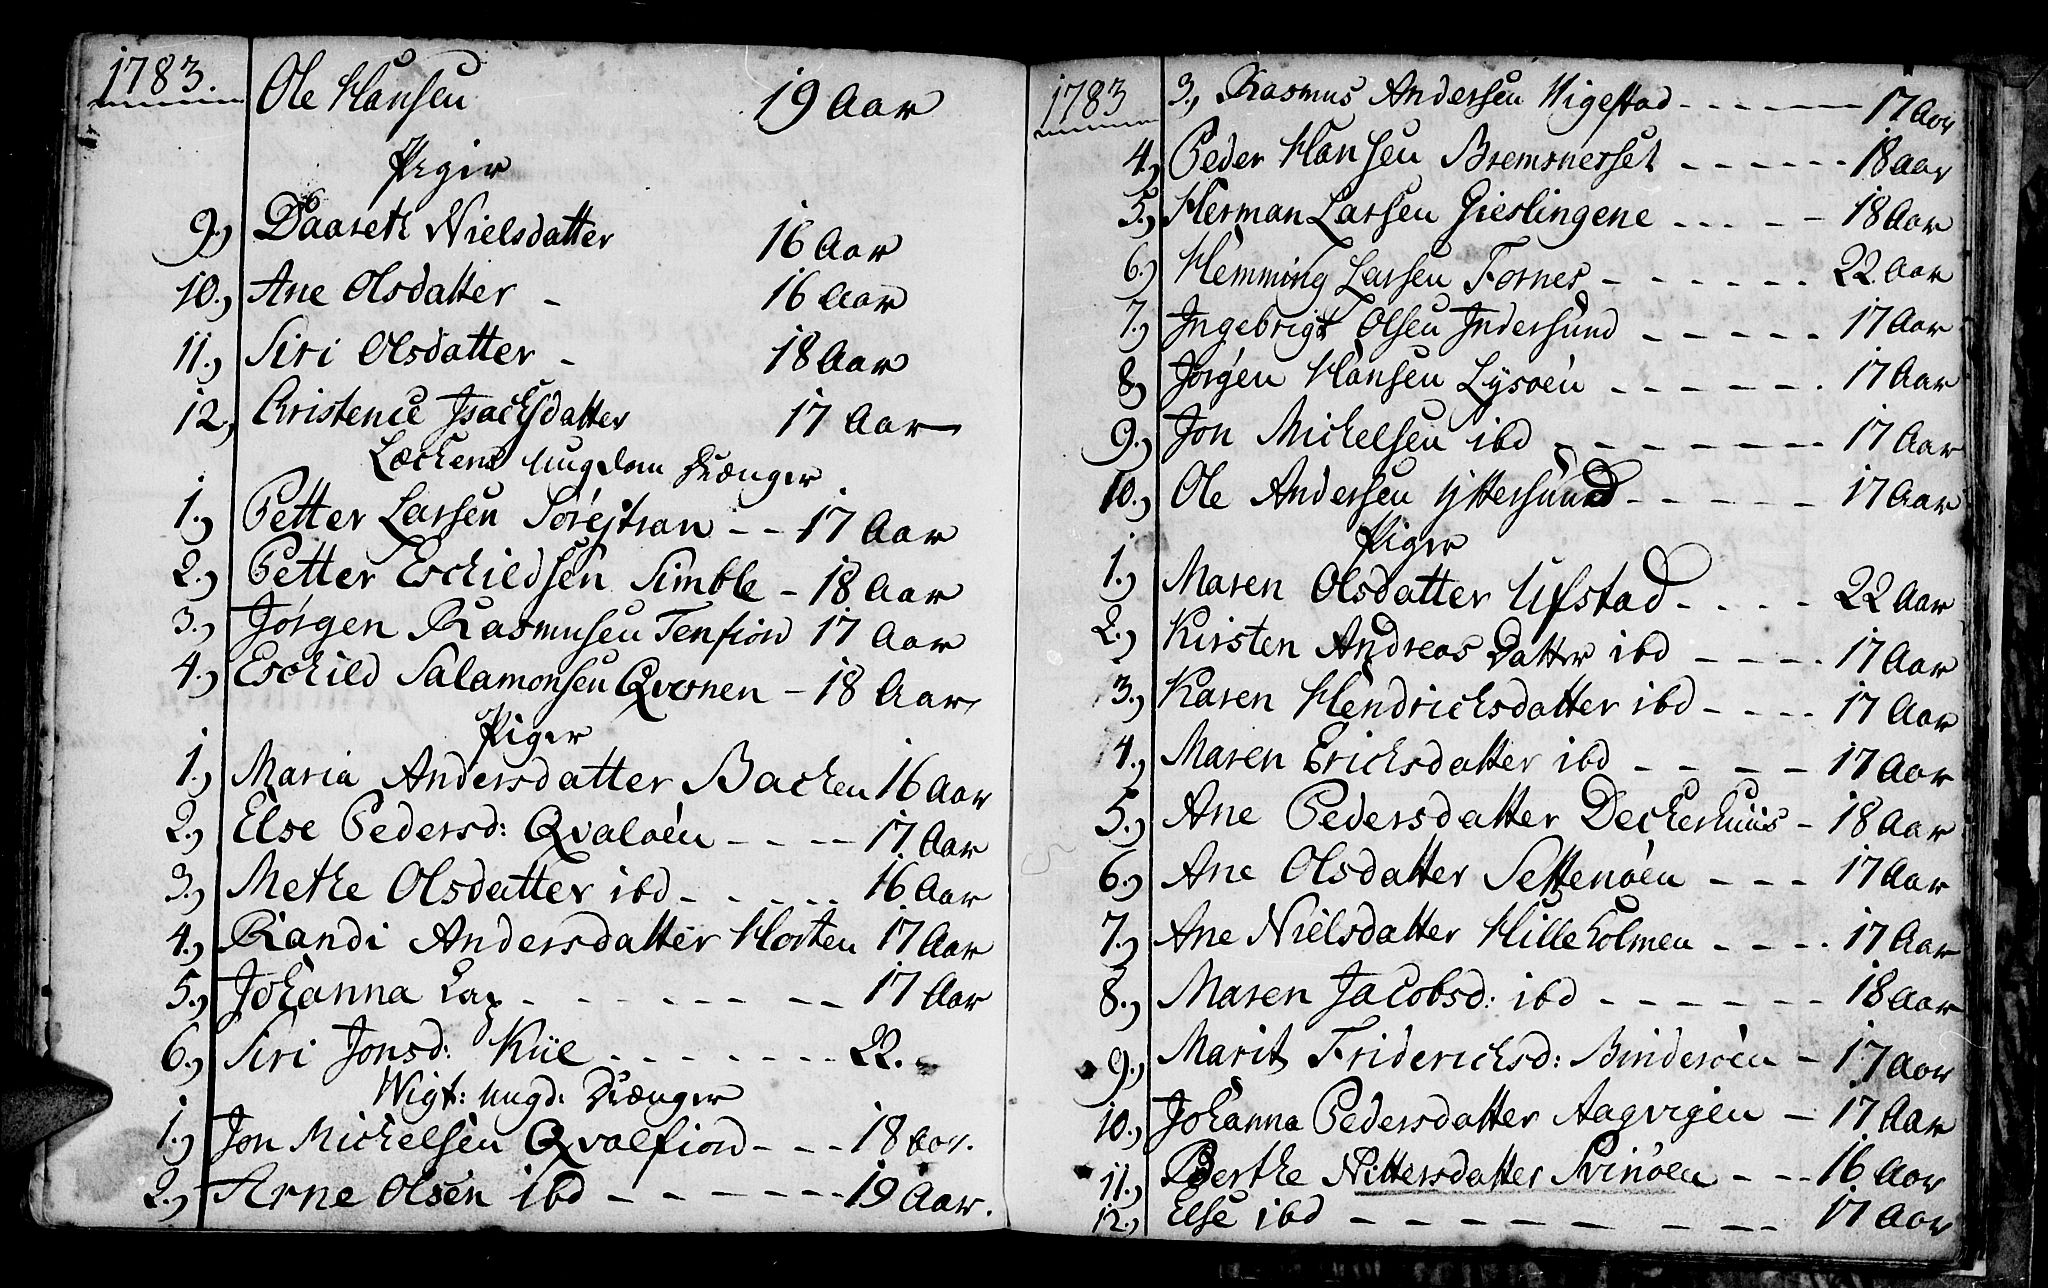 1783.
Ole Hansen 19 Aar
Piger
9.) Daareth Nielsdatter 16 Aar
10.) Ane Olsdatter - 16 Aar
11.) Siri Olsdatter - 18 Aar
12.) Christence Jsachsdatter 17 Aar
Læckens Ungdom Drænger
1.) Petter Larsen Sørejtran - - 17 Aar
2.) Petter Eschildsen Simble - 18 Aar
3.) Jørgen Rasmusen Tenfiord 17 Aar
4.) Eschild Salamonsen Qvernen - 18 Aar
Piger
1.) Maria Andersdatter Backen 16 Aar
2.) Else Pedersd: Qvaløen - - - - 17 Aar
3.) Methe Olsdatter ibd - - - - - 16 Aar
4.) Randi Andersdatter Horten 17 Aar
5.) Johanna Lap - - - - - - - 17 Aar
6.) Siri Jonsd: Kiie - - - - - - - 22.
Wigt: ungd: Drænger
1.) Jon Michelsen Qvalfiord - - - 18 Aar.
2.) Arne Olsen ibd - - - - - - - 19 Aar.
1783
3.) Rasmus Andersen Vigestad - - - - - 17 Aar
4.) Peder Hansen Bremsnesset - - - - - - 18 Aar
5.) Herman Larsen Gieslingene - - - - - 18 Aar
6.) Hemming Larsen Fornes - - - - - - 22 Aar
7.) Jngebrigt Olsen Jndersund - - - - - 17 Aar
8) Jørgen Hansen Lysøen - - - - - - 17 Aar
9.) Jon Michelsen ibd - - - - - - - 17 Aar
10.) Ole Andersen Yttersund - - - - - 17 Aar
Piger
1.) Maren Olsdatter Ufstad - - - - 22 Aar
2.) Kirsten Andreas Datter ibd - - - - 17 Aar
3.) Karen Hendrichsdatter ibd - - - - 17 Aar
4.) Maren Erichsdatter ibd - - - - 17 Aar
5.) Ane Pedersdatter Deckerhuus - 18 Aar
6.) Ane Olsdatter Settenøen - - - 17 Aar
7.) Ane Nielsdatter Hilleholmen - - - - 17 Aar
8.) Maren Jacobsd: ibd - - - - - - 18 Aar
9.) Marit Friderichsd: Bindesøen - 17 Aar
10.) Johanna Pedersdatter Aagvigen - 17 Aar
11.) Berthe Nittersdatter Svinøen - - - 16 Aar
12.) Else ibd - - - - - - - - 17 Aar